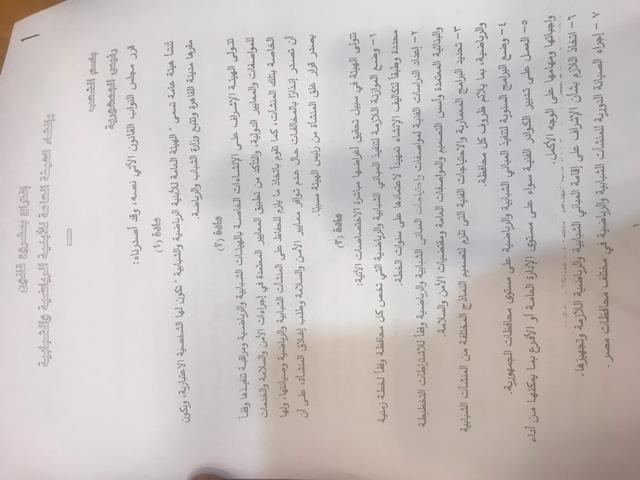 ١
اقتراح بمشروع قانون
بإنشاء الهيئة العامة للأبنية الرياضية والشبابية
باسم الشعب
رئيس الجمهورية
قرر مجلس النواب القانون الآتي نصه، وقد أصدرناه:
مادة (١)
تنشأ هيئة عامة تسمى " الهيئة العامة للأبنية الرياضية والشبابية " تكون لها الشخصية الاعتبارية، ويكون
مقرها مدينة القاهرة وتتبع وزارة الشباب والرياضة.
مادة (٢)
تتولى الهيئة الإشراف على الإنشاءات الخاصة بالهيئات الشبابية والرياضية ومراقبة تنفيذها وفقاً
للمواصفات والمعايير الدولية، والتأكد من تطبيق المعايير المعتمدة في إجراءات الأمن والسلامة والخدمات
الخاصة بتلك المنشآت، كما تقوم باتخاذ ما يلزم للحفاظ على المنشآت الشبابية والرياضية وصيانتها، ولها
أن تصدر إنذاراً بالمخالفات حال عدم توافر معايير الأمن والسلامة وطلب إغلاق المنشأة، على أن
يصدر قرار غلق المنشأة من رئيس الهيئة مسبباً.
مادة (٣)
تتولى الهيئة في سبيل تحقيق أغراضها مباشرة الاختصاصات الآتية:
١- وضع الموازنة اللازمة لتنفيذ المباني الشبابية والرياضية التي تخص كل محافظة وفقاً لخطة زمنية
محددة وطبقاً لتكاليف الإنشاء تمهيداً لاعتمادها على سنوات الخطة.
٢- إعداد الدراسات الفنية لمواصفات واحتياجات المباني الشبابية والرياضية وفقاً للاشتراطات التخطيطية
والبنائية المعتمدة وأسس التصميم والمواصفات العامة ومقتضيات الأمن والسلامة.
٣- تحديد البرامج المعمارية والاحتياجات الفنية التي تلزم لتصميم النماذج المختلفة من المنشآت الشبابية
والرياضية، بما يلائم ظروف كل محافظة.
٤- وضع البرامج السنوية لتنفيذ المباني الشبابية والرياضية على مستوى محافظات الجمهورية.
٥- العمل على تدبير الكوادر الفنية سواء على مستوى الإدارة العامة أو الأفرع بما يمكنها من أداء
واجباتها ومهمتها على الوجه الأكمل.
٦- اتخاذ اللازم بشأن الإشراف على إقامة المباني الشبابية والرياضية اللازمة وتجهيزها.
٧- إجراء الصيانة الدورية للمنشآت الشبابية والرياضية في مختلف محافظات مصر.